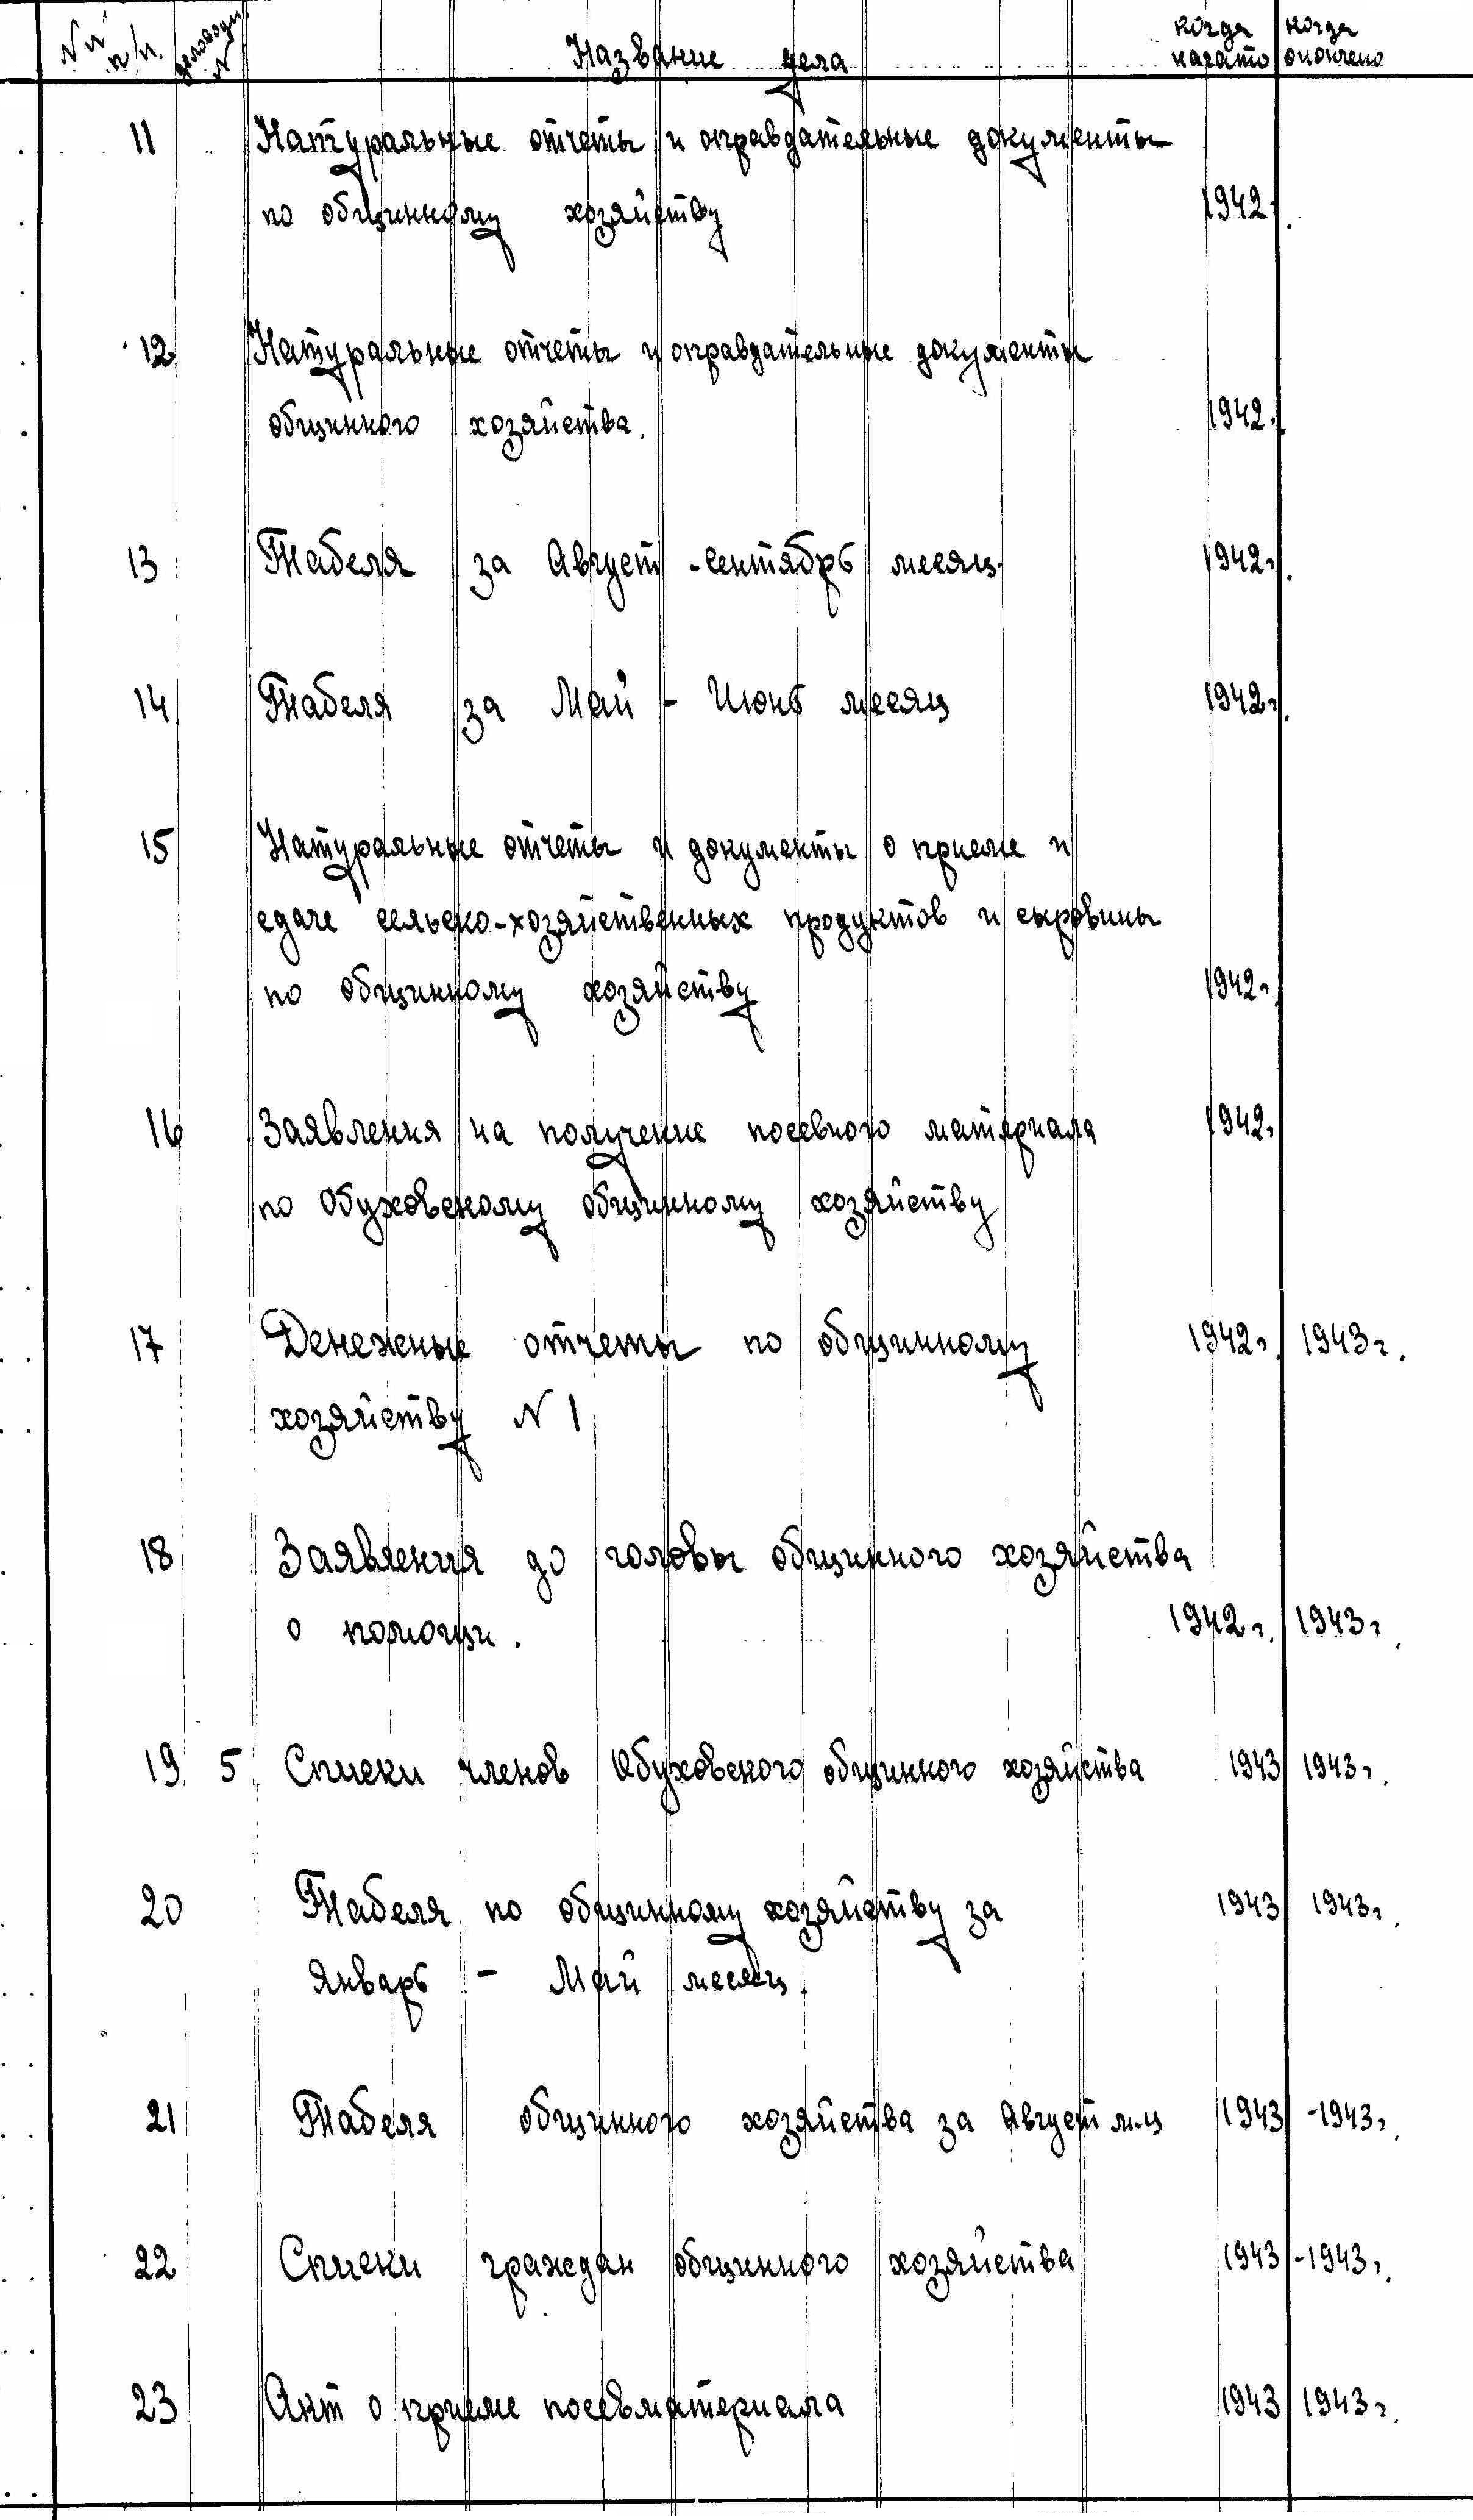 NN п/п. деловодч. N Название дела когда начато когда окончено
11 Натуральные отчеты и оправдательные документы
по общинному хозяйству 1942.
12 Натуральные отчеты и оправдательные документы
общинного хозяйства. 1942.
13 Табеля за Август - Сентябрь месяц 1942г.
14 Табеля за Май - Июнь месяц 1942г.
15 Натуральные отчеты и документы о приеме и
сдаче сельско-хозяйственных продуктов и сыровины
по общинному хозяйству 1942г.
16 Заявления на получение посевного материала 1942г
по Обуховскому общинному хозяйству
17 Денежные отчеты по общинному 1942г. 1943г.
хозяйству N 1
18 Заявления до головы общинного хозяйства
о помощи. 1942г. 1943г.
19 5 Списки членов Обуховского общинного хозяйства 1943 1943г.
20 Табеля по общинному хозяйству за 1943 1943г.
Январь - Май месяц.
21 Табеля общинного хозяйства за Август м-ц 1943 -1943г.
22 Списки граждан общинного хозяйства 1943 -1943г.
23 Акт о приеме посевматериала 1943 1943г.